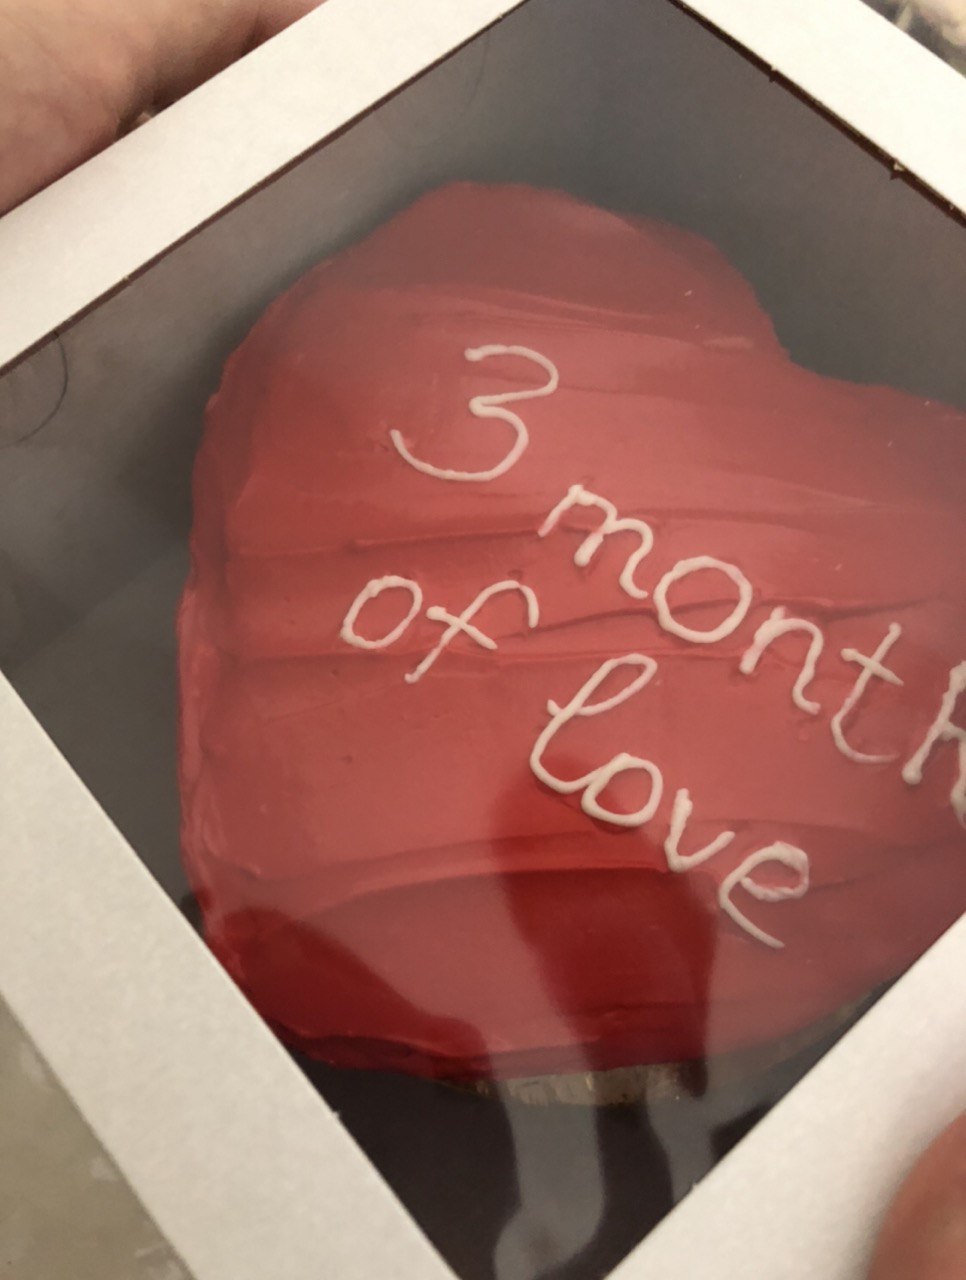 3
month
of
love